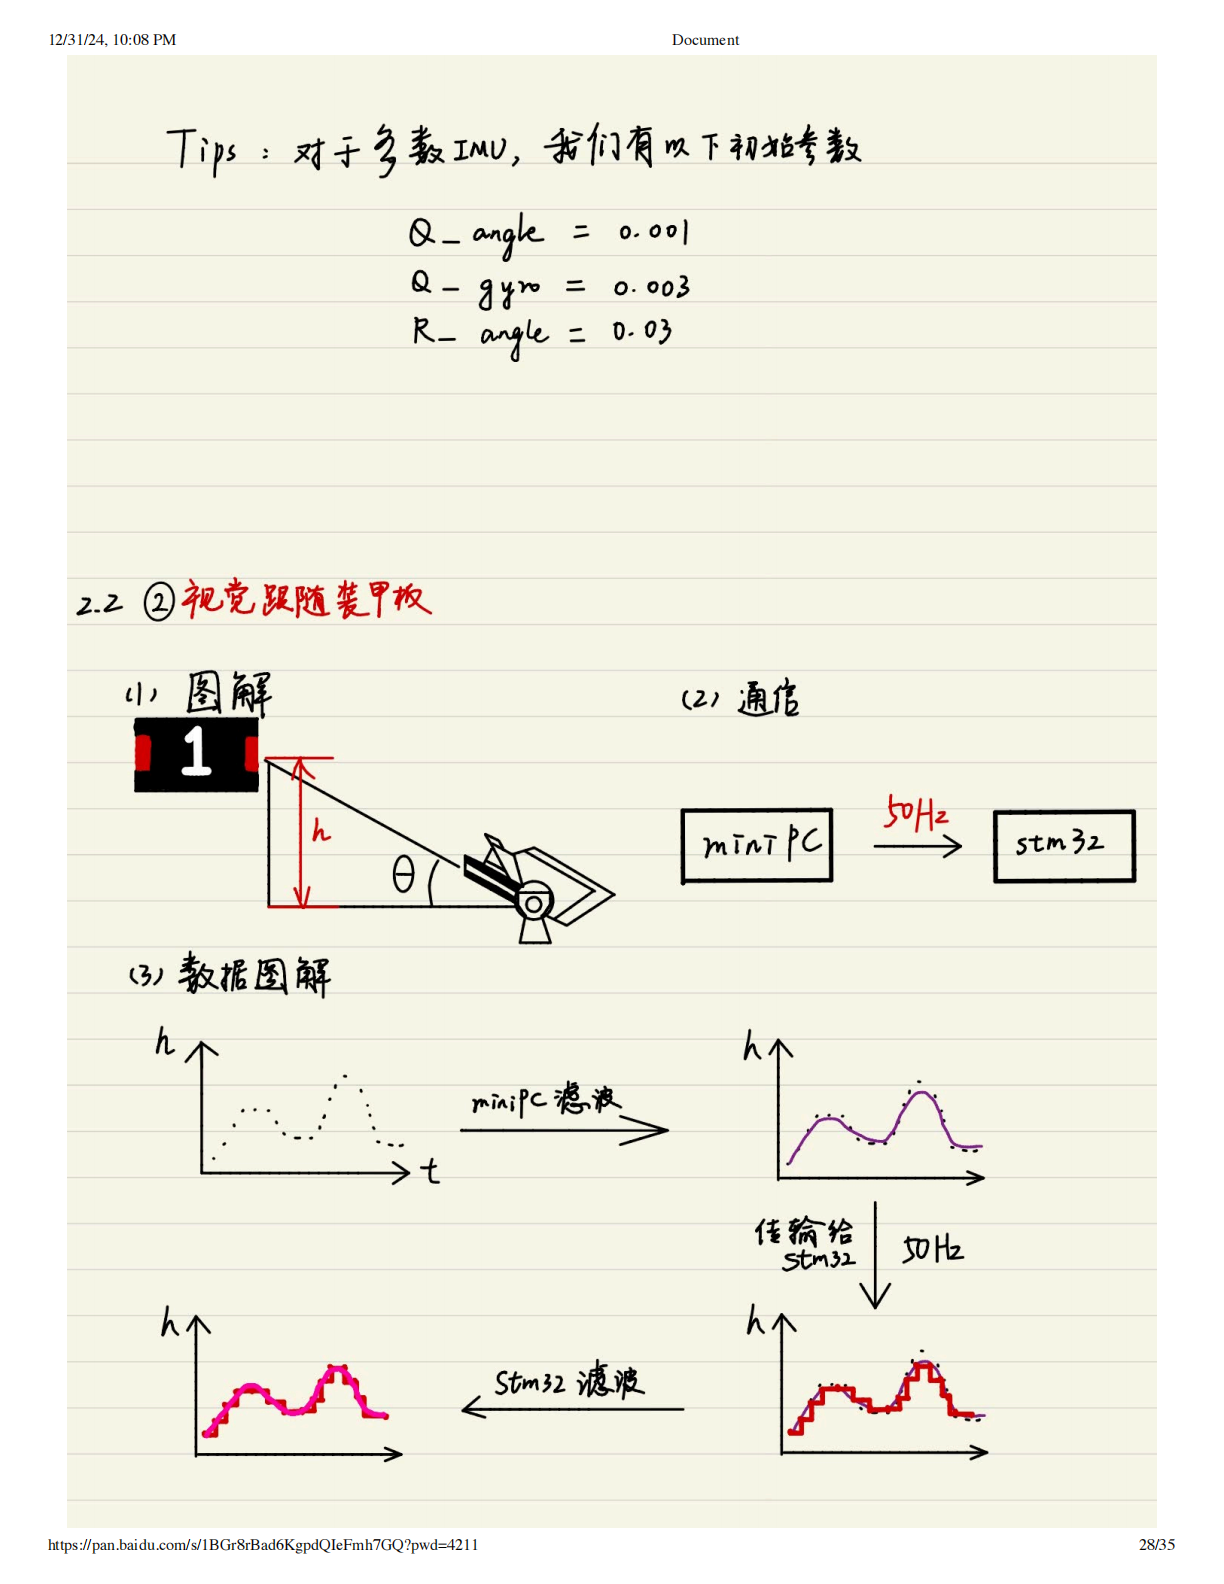 12/31/24, 10:08 PM
Document
Tips：对于多数IMU，我们有以下初始参数
Q_angle = 0.001
Q_gyro = 0.003
R_angle = 0.03
2.2 ②视觉跟随装甲板
(1) 图解
(2) 通信
1
h
θ
miniPC
50Hz
stm32
(3) 数据图解
h
t
miniPC滤波
h
传输给
stm32
50Hz
h
Stm32滤波
h
https://pan.baidu.com/s/1BGr8rBad6KgpdQIeFmh7GQ?pwd=4211
28/35